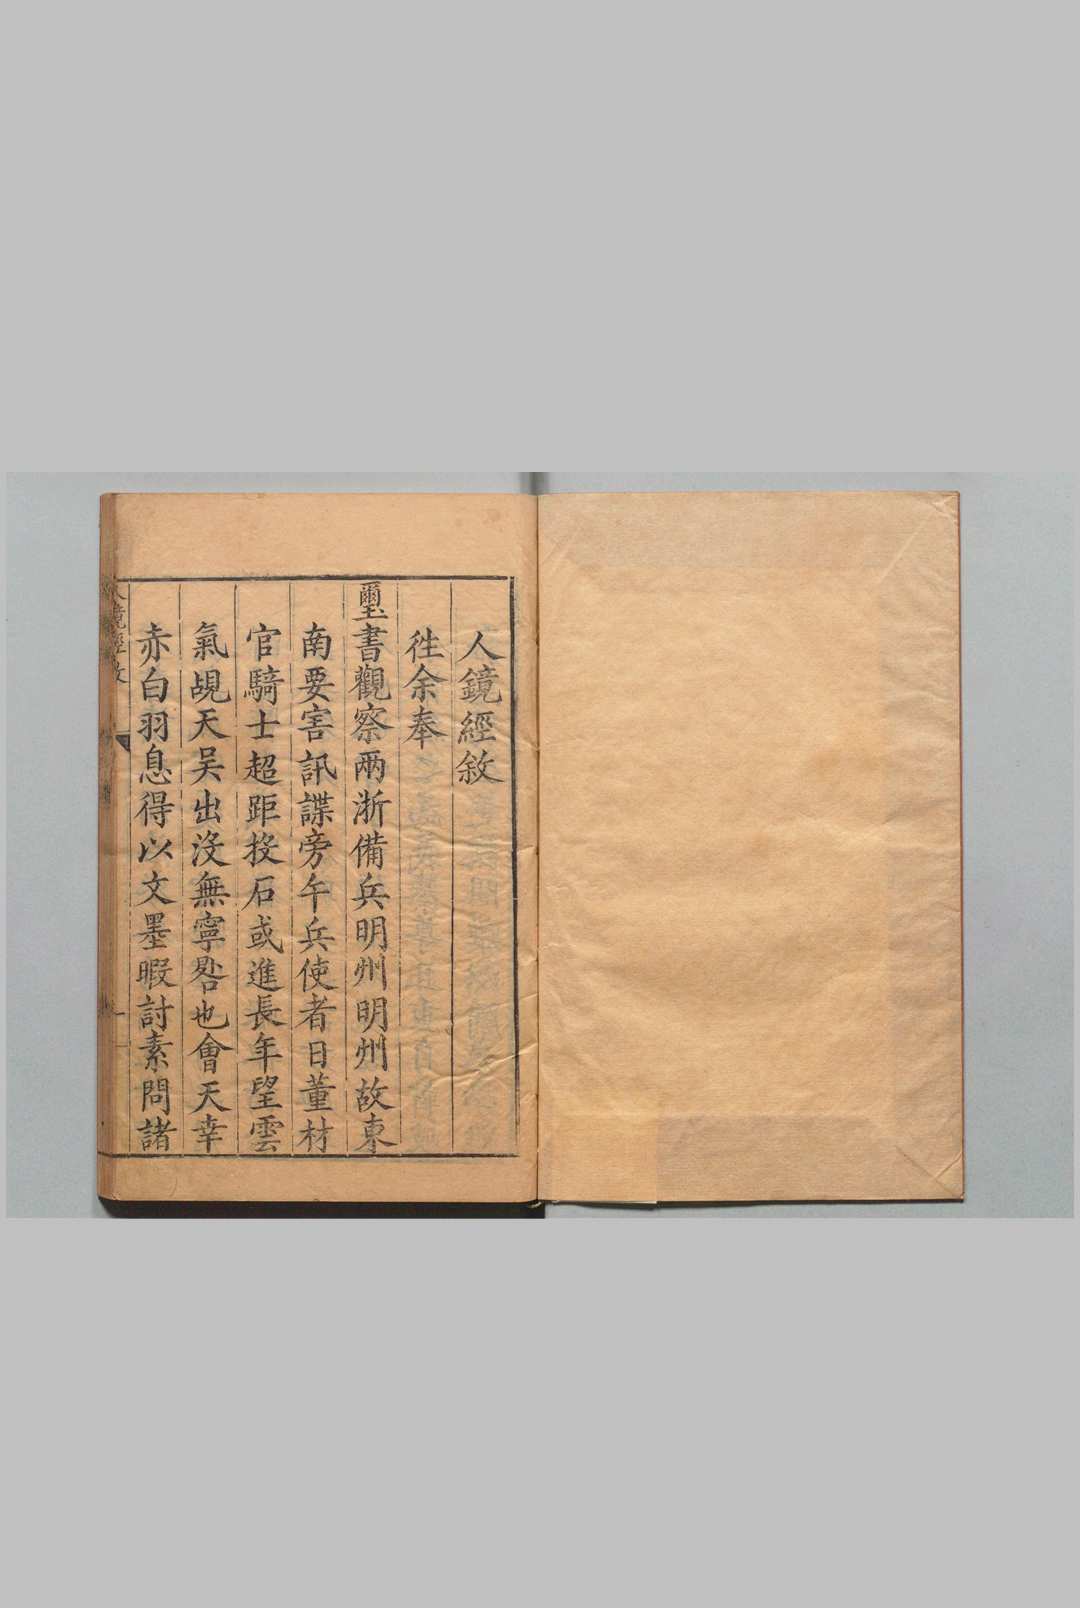 人鏡經敘
徃余奉
璽書觀察兩浙備兵明州明州故東
南要害訊諜旁午兵使者日董材
官騎士超距投石或進長年望雲
氣覘天吴出沒無寧晷也會天幸
赤白羽息得以文墨暇討素問諸
人鏡經敘